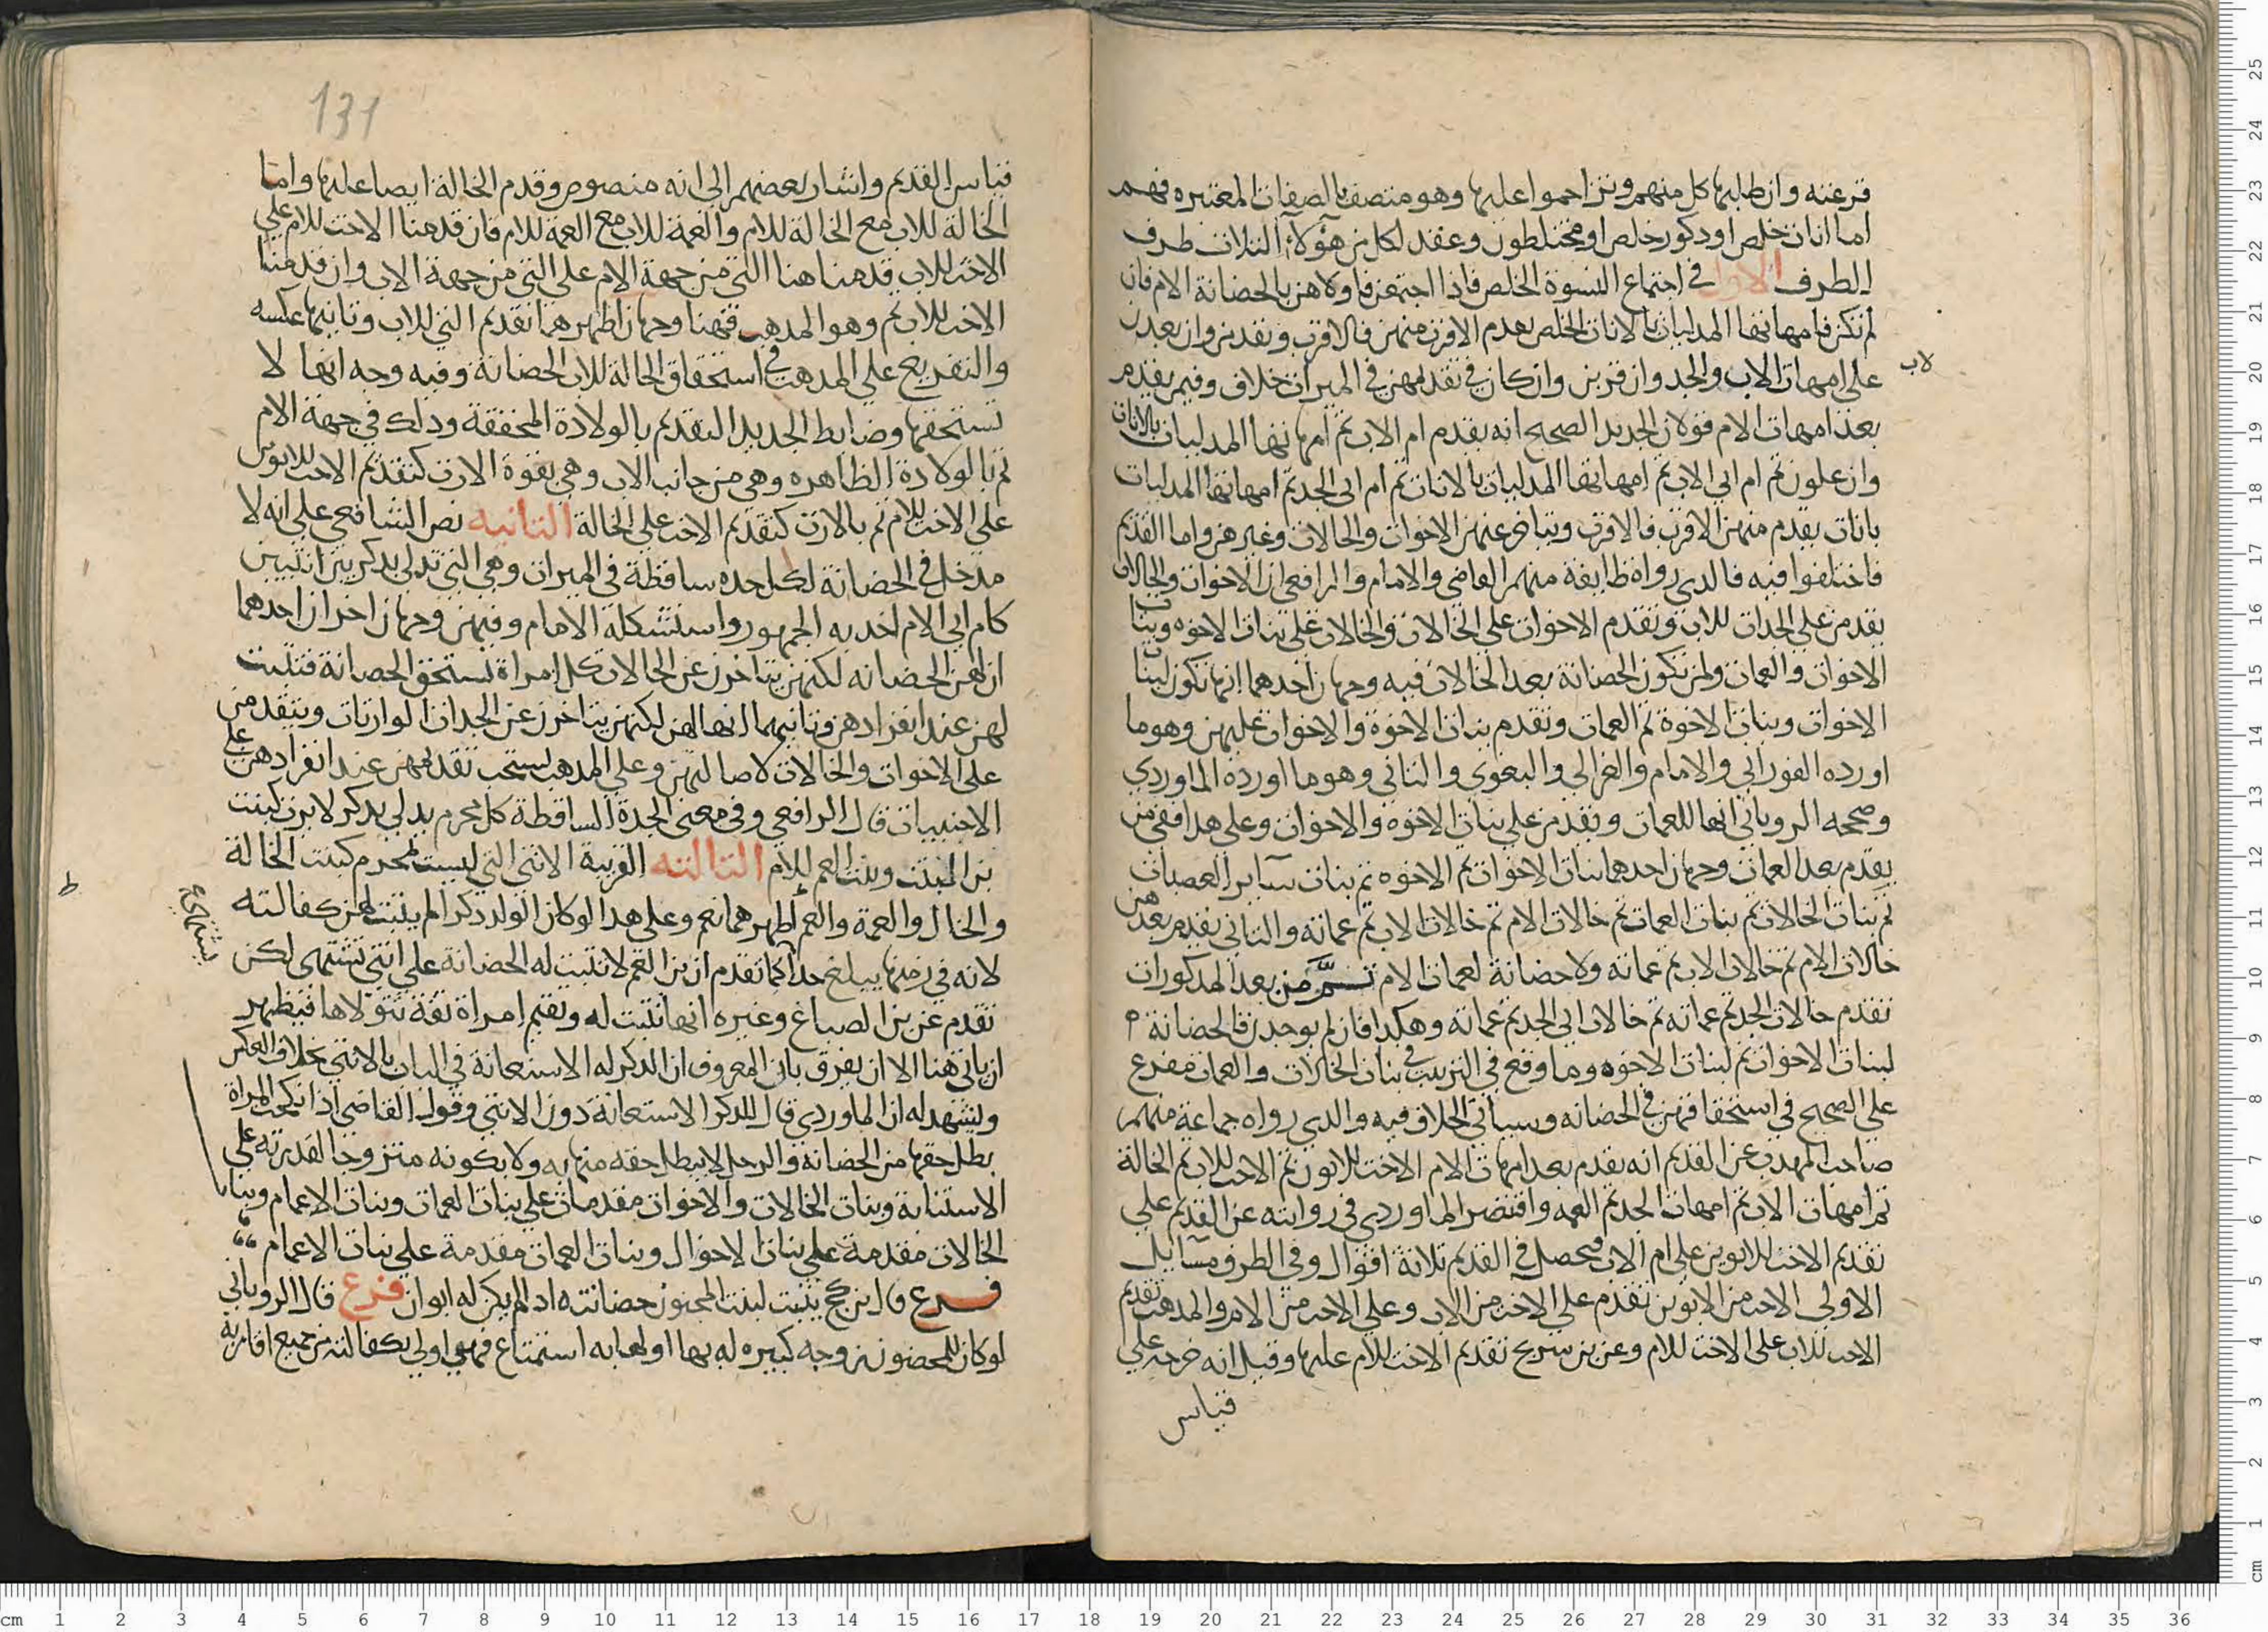 قرعته وان طلبها كل منهم وتزاحموا عليها وهو متصف بالصفات المعتبره فهم
اما اناث خلص او دكور خلص او مختلطون وعقد لكل من هؤلاء الثلاث طرف
الطرف الاول في اجتماع النسوة الخلص فاذا اجتمعن فاولاهن بالحضانة الام فان
لم تكن فامهاتها المدليات بالاناث الخلص يقدم الاقرب منهن فالاقرب ويقدمن وان بعدن
لاب
على امهات الاب والجد وان قربن وان كان في تقديمهن في الميراث خلاف وفيمن يقدم
بعد امهات الام قولان الجديد الصحيح انه يقدم ام الاب ثم امهاتها المدليات بالاناث
وان علون ثم ام ابي الاب ثم امهاتها المدليات بالاناث ثم ام ابي الجد ثم امهاتها المدليات
باناث يقدم منهن الاقرب فالاقرب ويتاخر عنهن الاخوات والخالات وغيرهن واما القديم
فاختلفوا فيه فالدي رواه طايفة منهم القاضي والامام والرافعي ان الاخوات والخالات
يقدمن على الجدات للاب وتقدم الاخوات على الخالات والخالات على بنات الاخوه وبنات
الاخوات والعمات ولمن تكون الحضانة بعد الخالات فيه وجهان احدهما انها تكون لبنات
الاخوات وبنات الاخوة ثم العمات وتقدم بنات الاخوة والاخوات عليهن وهو ما
اورده الفوراني والامام والغزالي والبغوى والثاني وهو ما اورده الماوردي
وصححه الروياني انها للعمات ويقدمن على بنات الاخوه والاخوات وعلى هدا ففي من
يقدم بعد العمات وجهان احدهما بنات الاخوات ثم الاخوه ثم بنات ساير العصبات
ثم بنات الخالات ثم بنات العمات ثم خالات الام ثم خالات الاب ثم عماته والثاني يقدم بعدهن
خالات الام ثم خالات الاب ثم عماته ولا حضانة لعمات الام ثم من بعد المدكورات
تقدم خالات الجد ثم عماته ثم خالات ابي الجد ثم عماته وهكدا فان لم يوجدن فالحضانة
لبنات الاخوات ثم لبنات الاخوه وما وقع في الترتيب في بنات الخالات والعمات مفرع
على الصحيح في استحقاقهن في الحضانه وسياتي الخلاف فيه والدي رواه جماعة منهم
صاحب المهدب عن القديم انه يقدم بعد امهات الام الاخت للابوين ثم الاخت للاب ثم الخالة
ثم امهات الاب ثم امهات الجد ثم العمه واقتصر الماوردي في روايته عن القديم على
تقديم الاخت للابوين على ام الاب فيحصل في القديم ثلاثة اقوال وفي الطرف مسايل
الاولى الاخت من الابوين تقدم على الاخت من الاب وعلى الاخت من الام والمدهب تقديم
الاخت للاب على الاخت للام وعن بن سريج تقديم الاخت للام عليها وقيل انه خرجه على
قياس
131
قياس القديم واشار بعضهم الى انه منصوص وقدم الخالة ايضا عليها واما
الخالة للاب مع الخالة للام والعمة للاب مع العمة للام فان قدمنا الاخت للام على
الاخت للاب قدمنا هنا التي من جهة الام على التي من جهة الاب وان قدمنا
الاخت للاب ثم وهو المدهب فهنا وجهان اظهرهما تقديم التي للاب وثانيهما عكسه
والتفريع على المدهب في استحقاق الخالة للاب الحضانة وفيه وجه انها لا
تستحقها وضابط الجديد التقديم بالولادة المحققة ودلك في جهة الام
ثم بالولادة الظاهره وهي من جانب الاب وهي بقوة الارث كتقديم الاخت للابوين
على الاخت للام ثم بالارث كتقديم الاخت على الخالة الثانيه نص الشافعي على انه لا
مدخل في الحضانة لكل جده ساقطة في الميراث وهي التي تدلي بدكر بين انثيين
كام ابي الام اخد به الجمهور واستشكله الامام وفيهن وجهان اخران احدهما
ان لهن الحضانه لكنهن يتاخرن عن الخالات كل امراة تستحق الحضانة فتثبت
لهن عند انفرادهن وثانيهما انها لهن لكنهن يتاخرن عن الجدات الوارثات ويتقدمن
على الاخوات والخالات لاصالتهن وعلى المدهب يستحب تقديمهن عند انفرادهن على
الاجنبيات قال الرافعي وفي معنى الجدة الساقطة كل محرم يدلي بدكر لا يرث كبنت
بن البنت وبنت العم للام الثالثه القريبة الانثى التي ليست بمحرم كبنت الخالة
والخال والعمة والعم اظهرهما نعم وعلى هدا لو كان الولد دكرا لم يثبت لهن كفالته
يشتهي ع
ط
لانه في زمنها يبلغ حدا كما تقدم ان بن العم لا تثبت له الحضانة على انثى تشتهى لكن
تقدم عن بن الصباغ وغيره انها تثبت له وتقيم امراة ثقة تتولاها فيظهر
ان ياتي هنا الا ان يفرق بان المعروف ان الدكر له الاستعانة في البات بالانثى بخلاف العكس
ويشهد له ان الماوردي قال للدكر الاستعانة دون الانثى وقول القاضي اذا نكحت المراة
بطل حقها من الحضانة والرجل لا يبطل حقه منها به ولا بكونه متزوجا لقدرته على
الاستنابة وبنات الخالات والاخوات مقدمات على بنات العمات وبنات الاعمام وبنات
الخالات مقدمة على بنات الاخوال وبنات العمات مقدمة على بنات الاعمام
فرع قال بن كج يثبت لبنت المجنون حضانته اد لم يكن له ابوان فرع قال الروياني
لو كان للمحضون زوجه كبيره له بها او لها به استمتاع فهي اولى بكفالته من جميع اقاربه